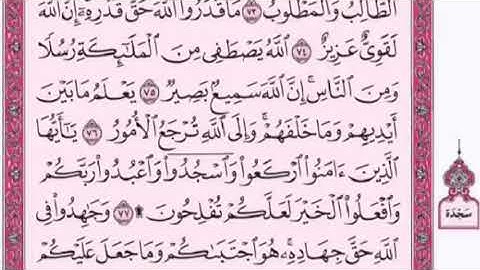 ٱلطَّالِبُ وَٱلْمَطْلُوبُ ٧٣ مَا قَدَرُوا۟ ٱللَّهَ حَقَّ قَدْرِهِۦٓ إِنَّ ٱللَّهَ
لَقَوِىٌّ عَزِيزٌ ٧٤ ٱللَّهُ يَصْطَفِى مِنَ ٱلْمَلَٰٓئِكَةِ رُسُلًا
وَمِنَ ٱلنَّاسِ إِنَّ ٱللَّهَ سَمِيعٌۢ بَصِيرٌ ٧٥ يَعْلَمُ مَا بَيْنَ
أَيْدِيهِمْ وَمَا خَلْفَهُمْ وَإِلَى ٱللَّهِ تُرْجَعُ ٱلْأُمُورُ ٧٦ يَٰٓأَيُّهَا
ٱلَّذِينَ ءَامَنُوا۟ ٱرْكَعُوا۟ وَٱسْجُدُوا۟ وَٱعْبُدُوا۟ رَبَّكُمْ
وَٱفْعَلُوا۟ ٱلْخَيْرَ لَعَلَّكُمْ تُفْلِحُونَ ۩ ٧٧ وَجَٰهِدُوا۟ فِى
ٱللَّهِ حَقَّ جِهَادِهِۦ هُوَ ٱجْتَبَىٰكُمْ وَمَا جَعَلَ عَلَيْكُمْ
سَجْدَة